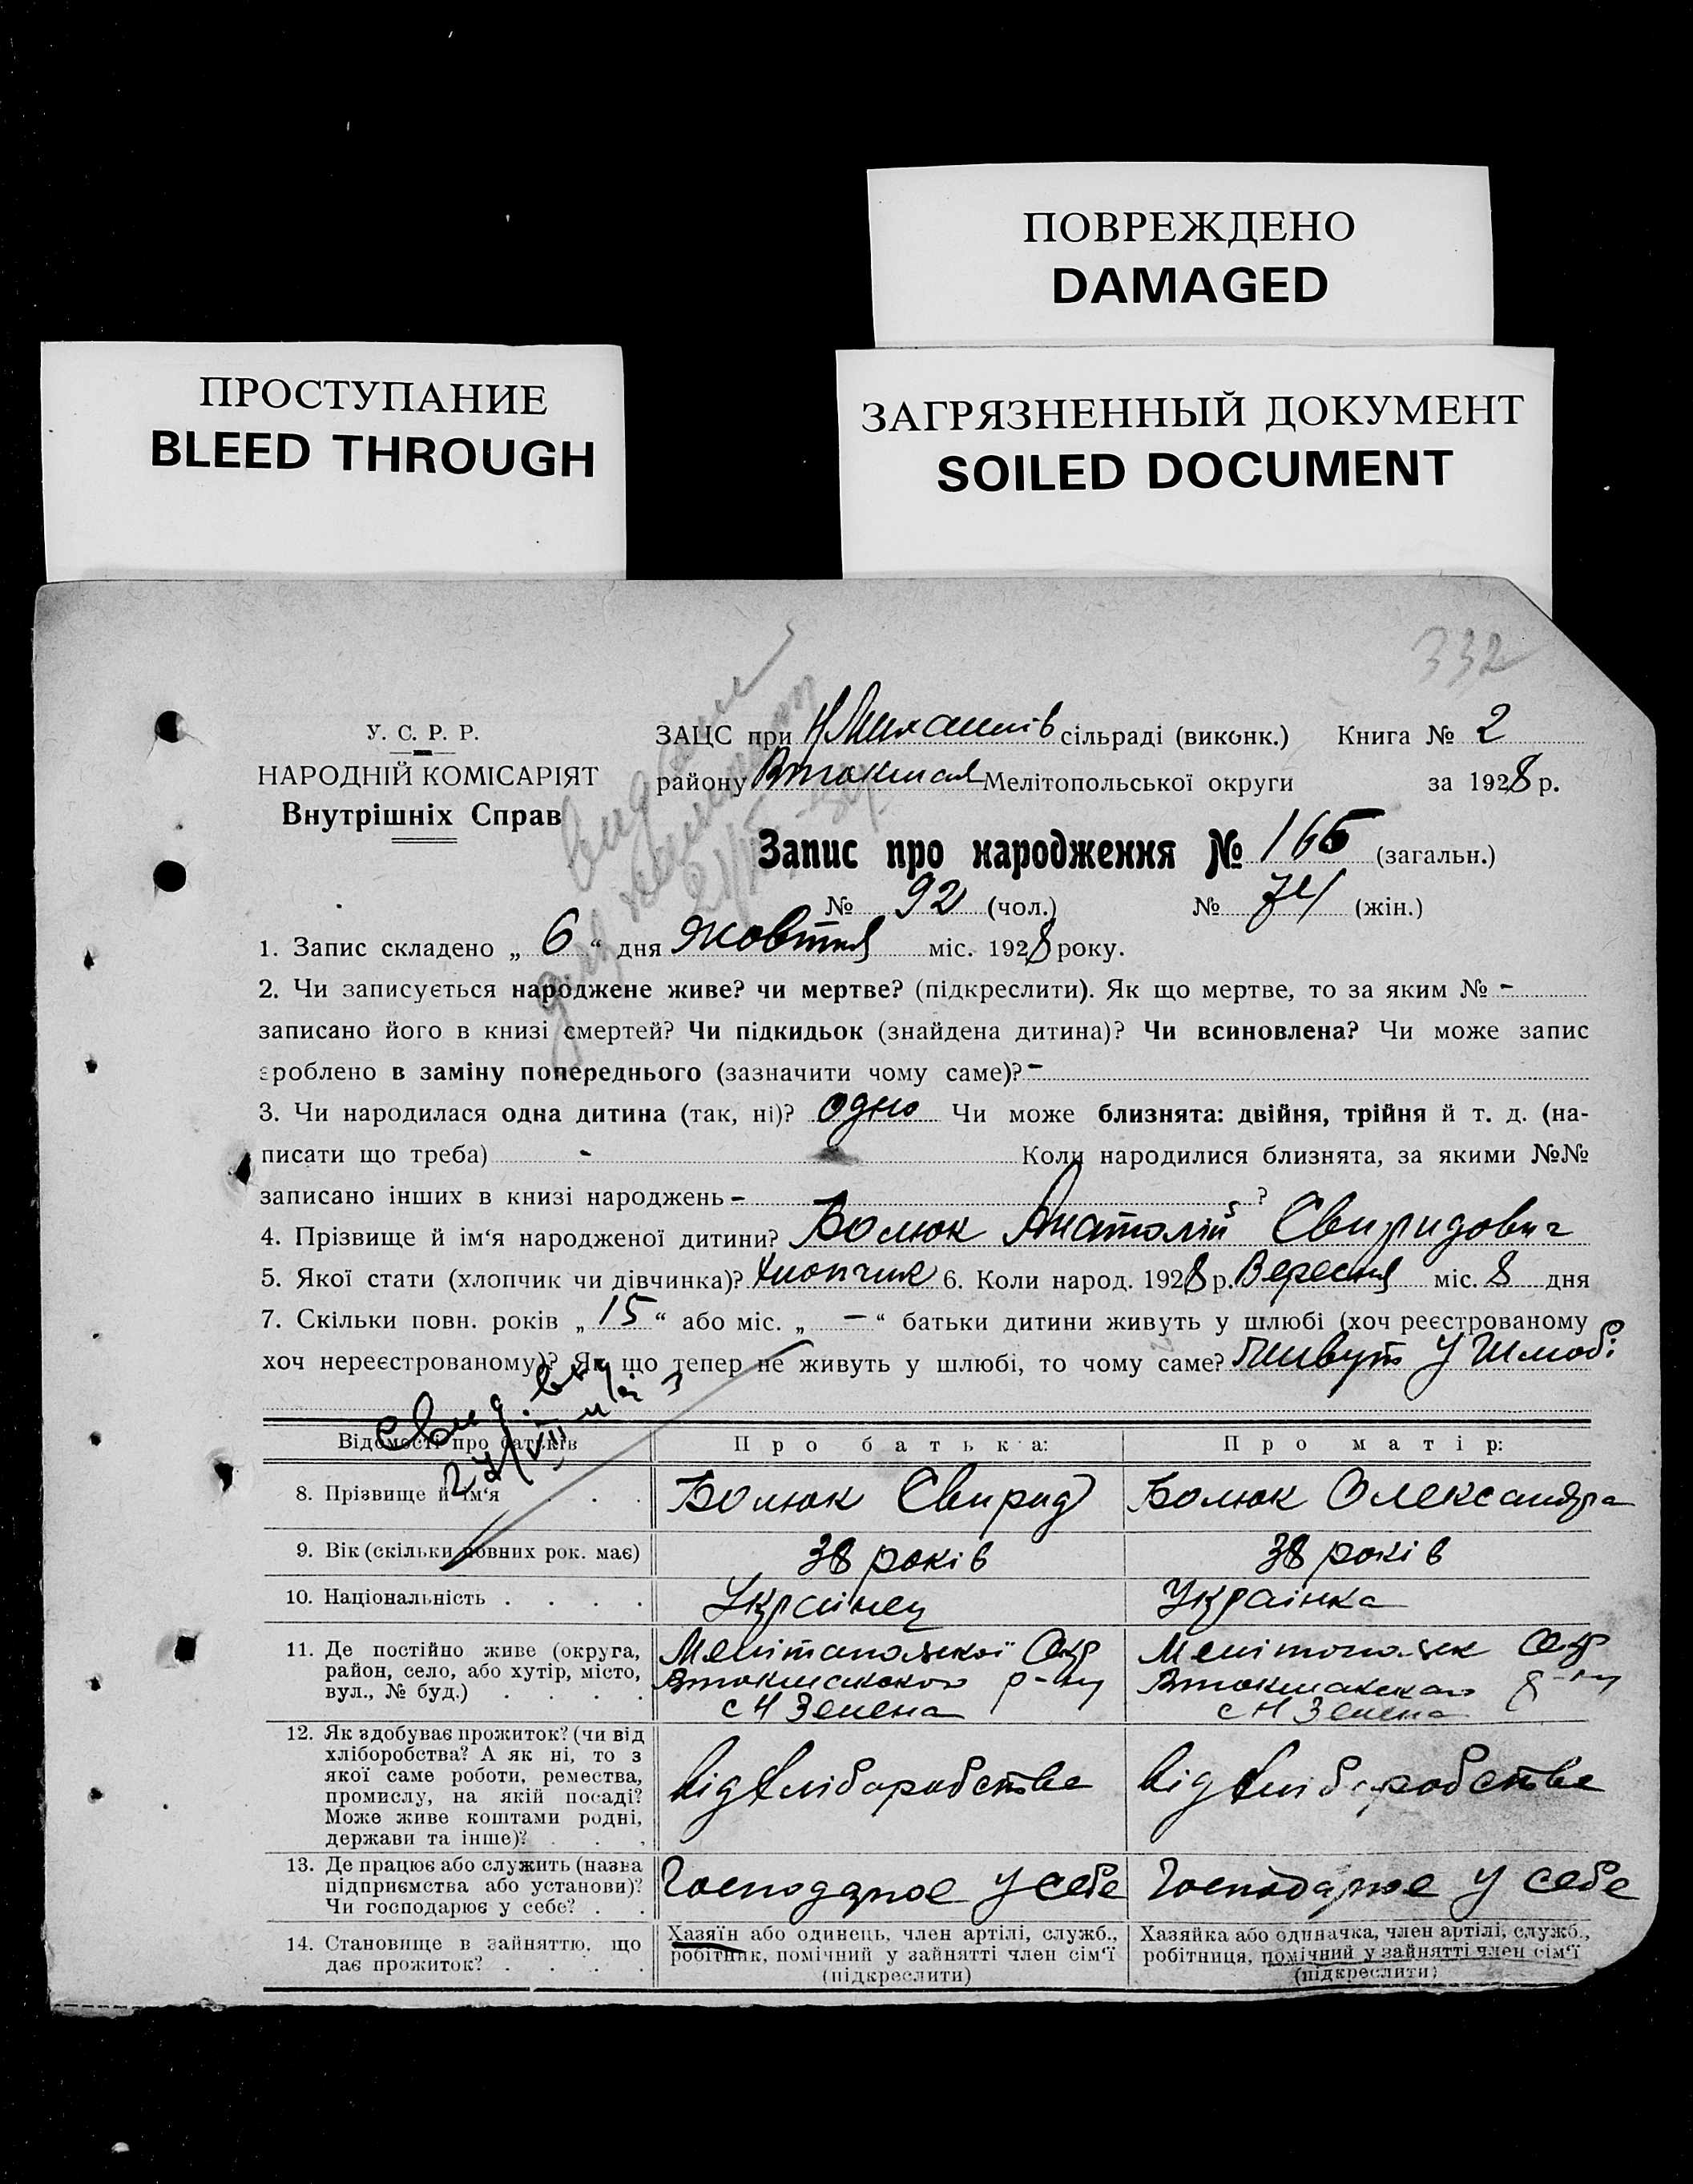 ПОВРЕЖДЕНО
DAMAGED
ПРОСТУПАНИЕ
BLEED THROUGH
ЗАГРЯЗНЕННЫЙ ДОКУМЕНТ
SOILED DOCUMENT
332
У. С. Р. Р.
НАРОДНІЙ КОМІСАРІЯТ
Внутрішніх Справ
ЗАЦС при сільраді (виконк.) Книга № 2
району Мелітопольської округи за 1928 р.
Запис про народження № 165 (загальн.)
№ 92 (чол.) № (жін.)
1. Запис складено „ 6 “ дня Жовтня міс. 1928 року.
2. Чи записується народжене живе? чи мертве? (підкреслити). Як що мертве, то за яким № -
записано його в книзі смертей? Чи підкидьок (знайдена дитина)? Чи всиновлена? Чи може запис
зроблено в заміну попереднього (зазначити чому саме)? -
3. Чи народилася одна дитина (так, ні)? одно Чи може близнята: двійня, трійня й т. д. (на-
писати що треба) - Коли народилися близнята, за якими №№
записано інших в книзі народжень - ?
4. Прізвище й ім‘я народженої дитини? Болюк Анатолій Свиридович
5. Якої стати (хлопчик чи дівчинка)? Хлопчик 6. Коли народ. 1928 р. Вересня міс. 8 дня
7. Скільки повн. років „ 15 “ або міс. „ — “ батьки дитини живуть у шлюбі (хоч реєстрованому
хоч нереєстрованому)? Як що тепер не живуть у шлюбі, то чому саме? Живуть у Шлюбі
Відомості про батьків Про батька: Про матір:
8. Прізвище й ім‘я . . . Болюк Свирид Болюк Олександра
9. Вік (скільки повних рок. має) 38 років 38 років
10. Національність . . . . Українец Українка
11. Де постійно живе (округа,
район, село, або хутір, місто,
вул., № буд.) . . . .
Мелітопольскої Окр
Втокмакского р-ну
с Н Зелена
Мелітопольск Окр
Втокмакского р-ну
с Н Зелена
12. Як здобуває прожиток? (чи від
хліборобства? А як ні, то з
якої саме роботи, ремества,
промислу, на якій посаді?
Може живе коштами родні,
держави та інше)? . . .
від хліборобства
від хліборобства
13. Де працює або служить (назва
підприємства або установи)?
Чи господарює у себе? . .
Господарює у себе
Господарює у себе
14. Становище в зайняттю, що
дає прожиток? . . . .
Хазяїн або одинець, член артілі, служб.,
робітник, помічний у зайнятті член сім‘ї
(підкреслити)
Хазяйка або одиначка, член артілі, служб.,
робітниця, помічний у зайнятті член сім‘ї
(підкреслити)